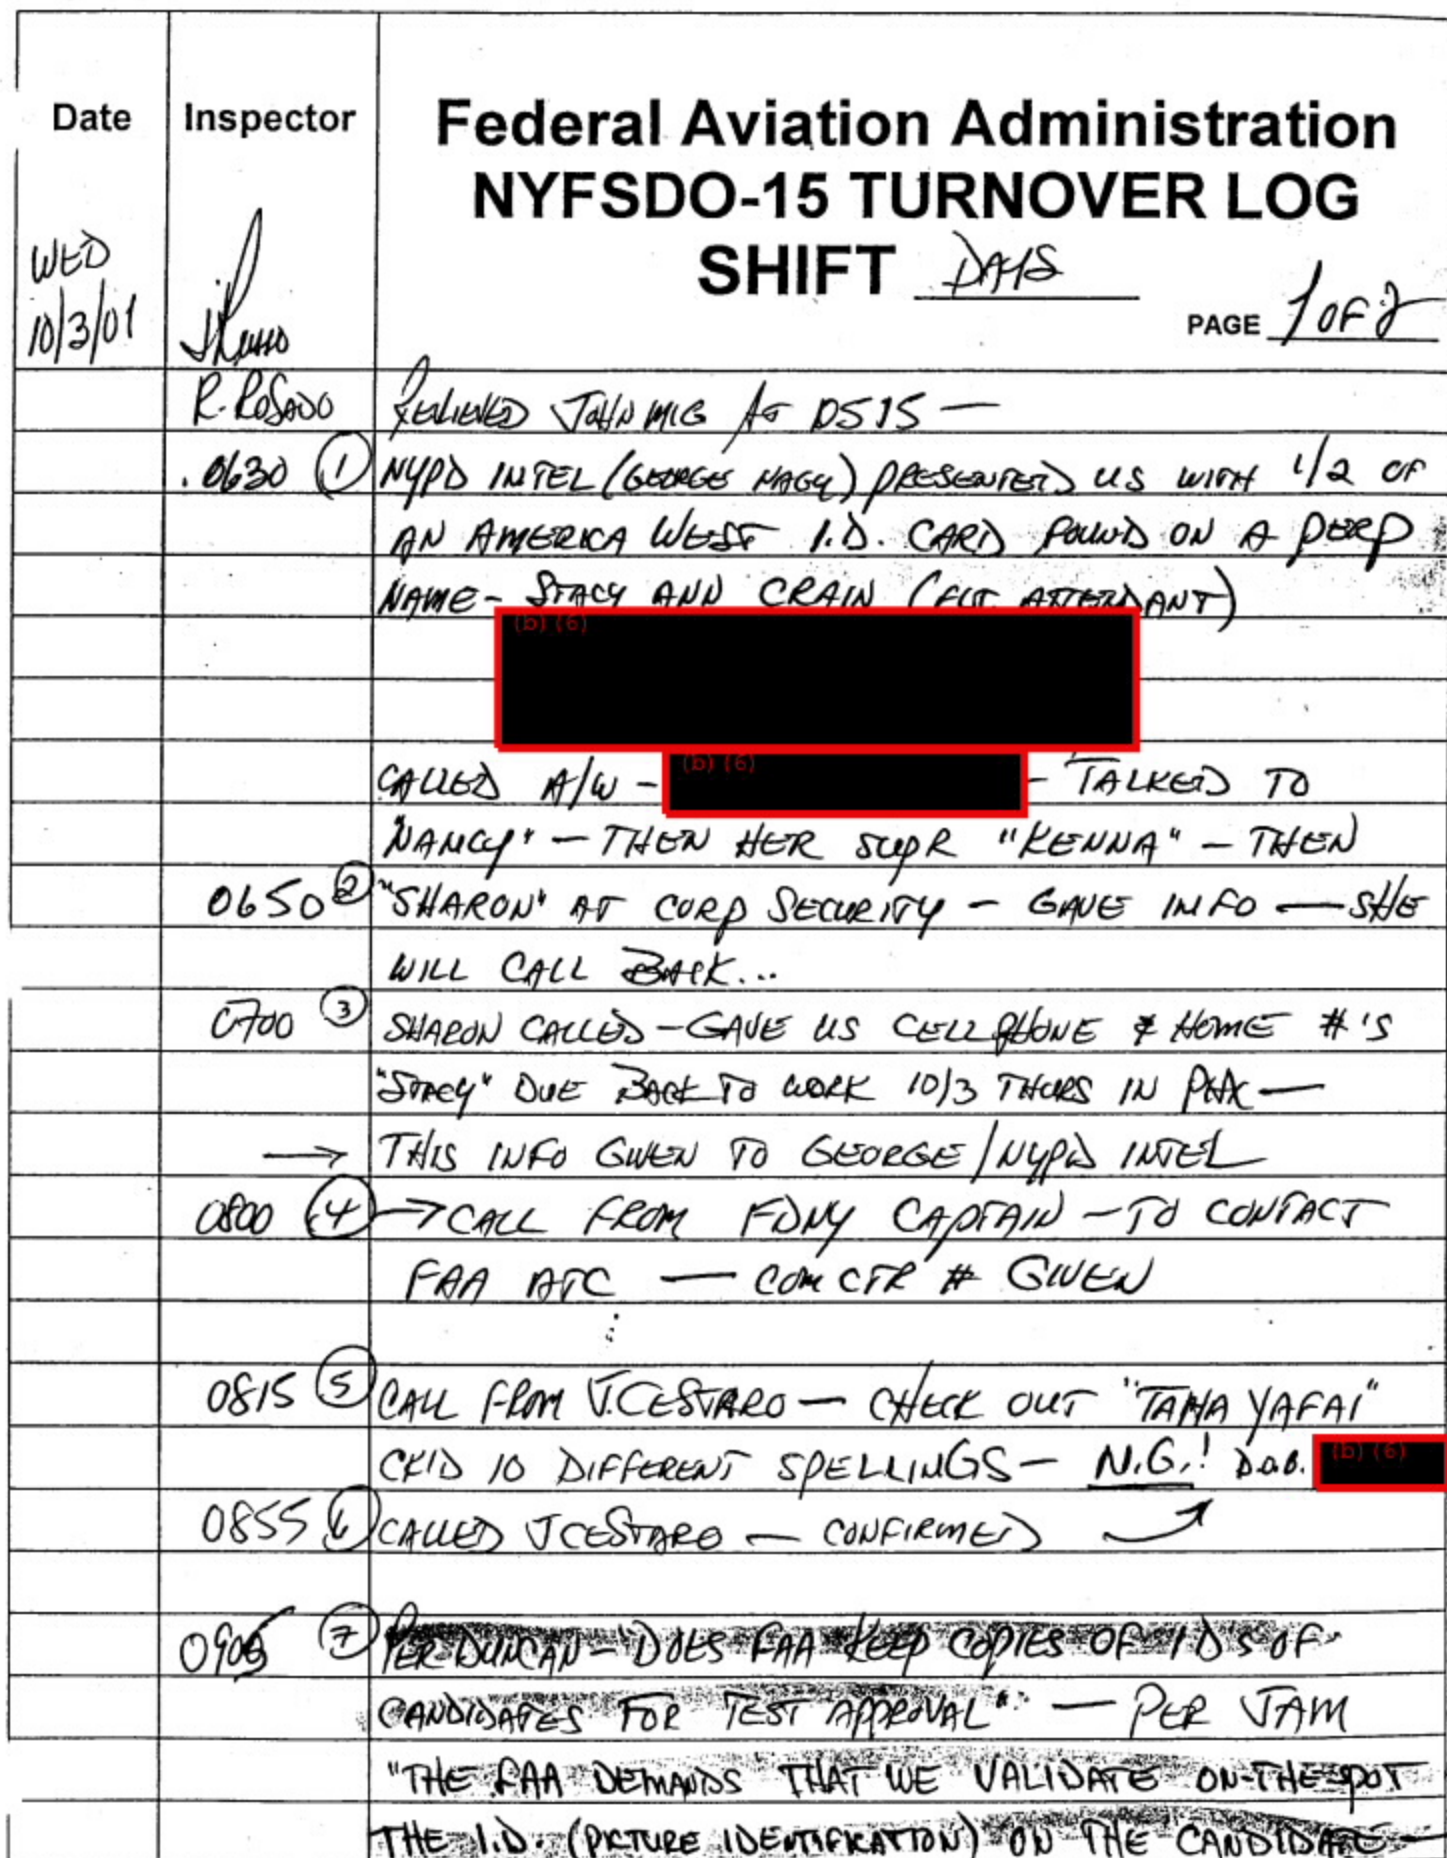 Date Inspector Federal Aviation Administration
NYFSDO-15 TURNOVER LOG
WED SHIFT DAYS
10/3/01 J Russo PAGE 1 OF 2
R. ROSADO RELIEVED JOHN MIG AT 0515 —
.0630 (1) NYPD INTEL (GEORGE NAGY) PRESENTED US WITH 1/2 OF
AN AMERICA WEST I.D. CARD FOUND ON A PERP
NAME - STACY ANN CRAIN (FLT ATTENDANT)
(b) (6)
CALLED A/W - (b) (6) - TALKED TO
"NANCY" - THEN HER SUPR "KENNA" - THEN
0650 (2) "SHARON" AT CORP SECURITY - GAVE INFO — SHE
WILL CALL BACK...
0700 (3) SHARON CALLED - GAVE US CELL PHONE & HOME #'S
"STACY" DUE BACK TO WORK 10/3 THURS IN PHX —
→ THIS INFO GIVEN TO GEORGE/NYPD INTEL
0800 (4) → CALL FROM FDNY CAPTAIN - TO CONTACT
FAA ATC — COM CTR # GIVEN
0815 (5) CALL FROM J.CESTARO — CHECK OUT "TAHA YAFAI"
CK'D 10 DIFFERENT SPELLINGS - N.G.! D.O.B. (b) (6)
0855 (6) CALLED J CESTARO — CONFIRMED
0905 (7) PER DUNCAN - "DOES FAA KEEP COPIES OF IDS OF
CANDIDATES FOR TEST APPROVAL" — PER JAM
"THE FAA DEMANDS THAT WE VALIDATE ON-THE-SPOT
THE I.D. (PICTURE IDENTIFICATION) ON THE CANDIDATE —